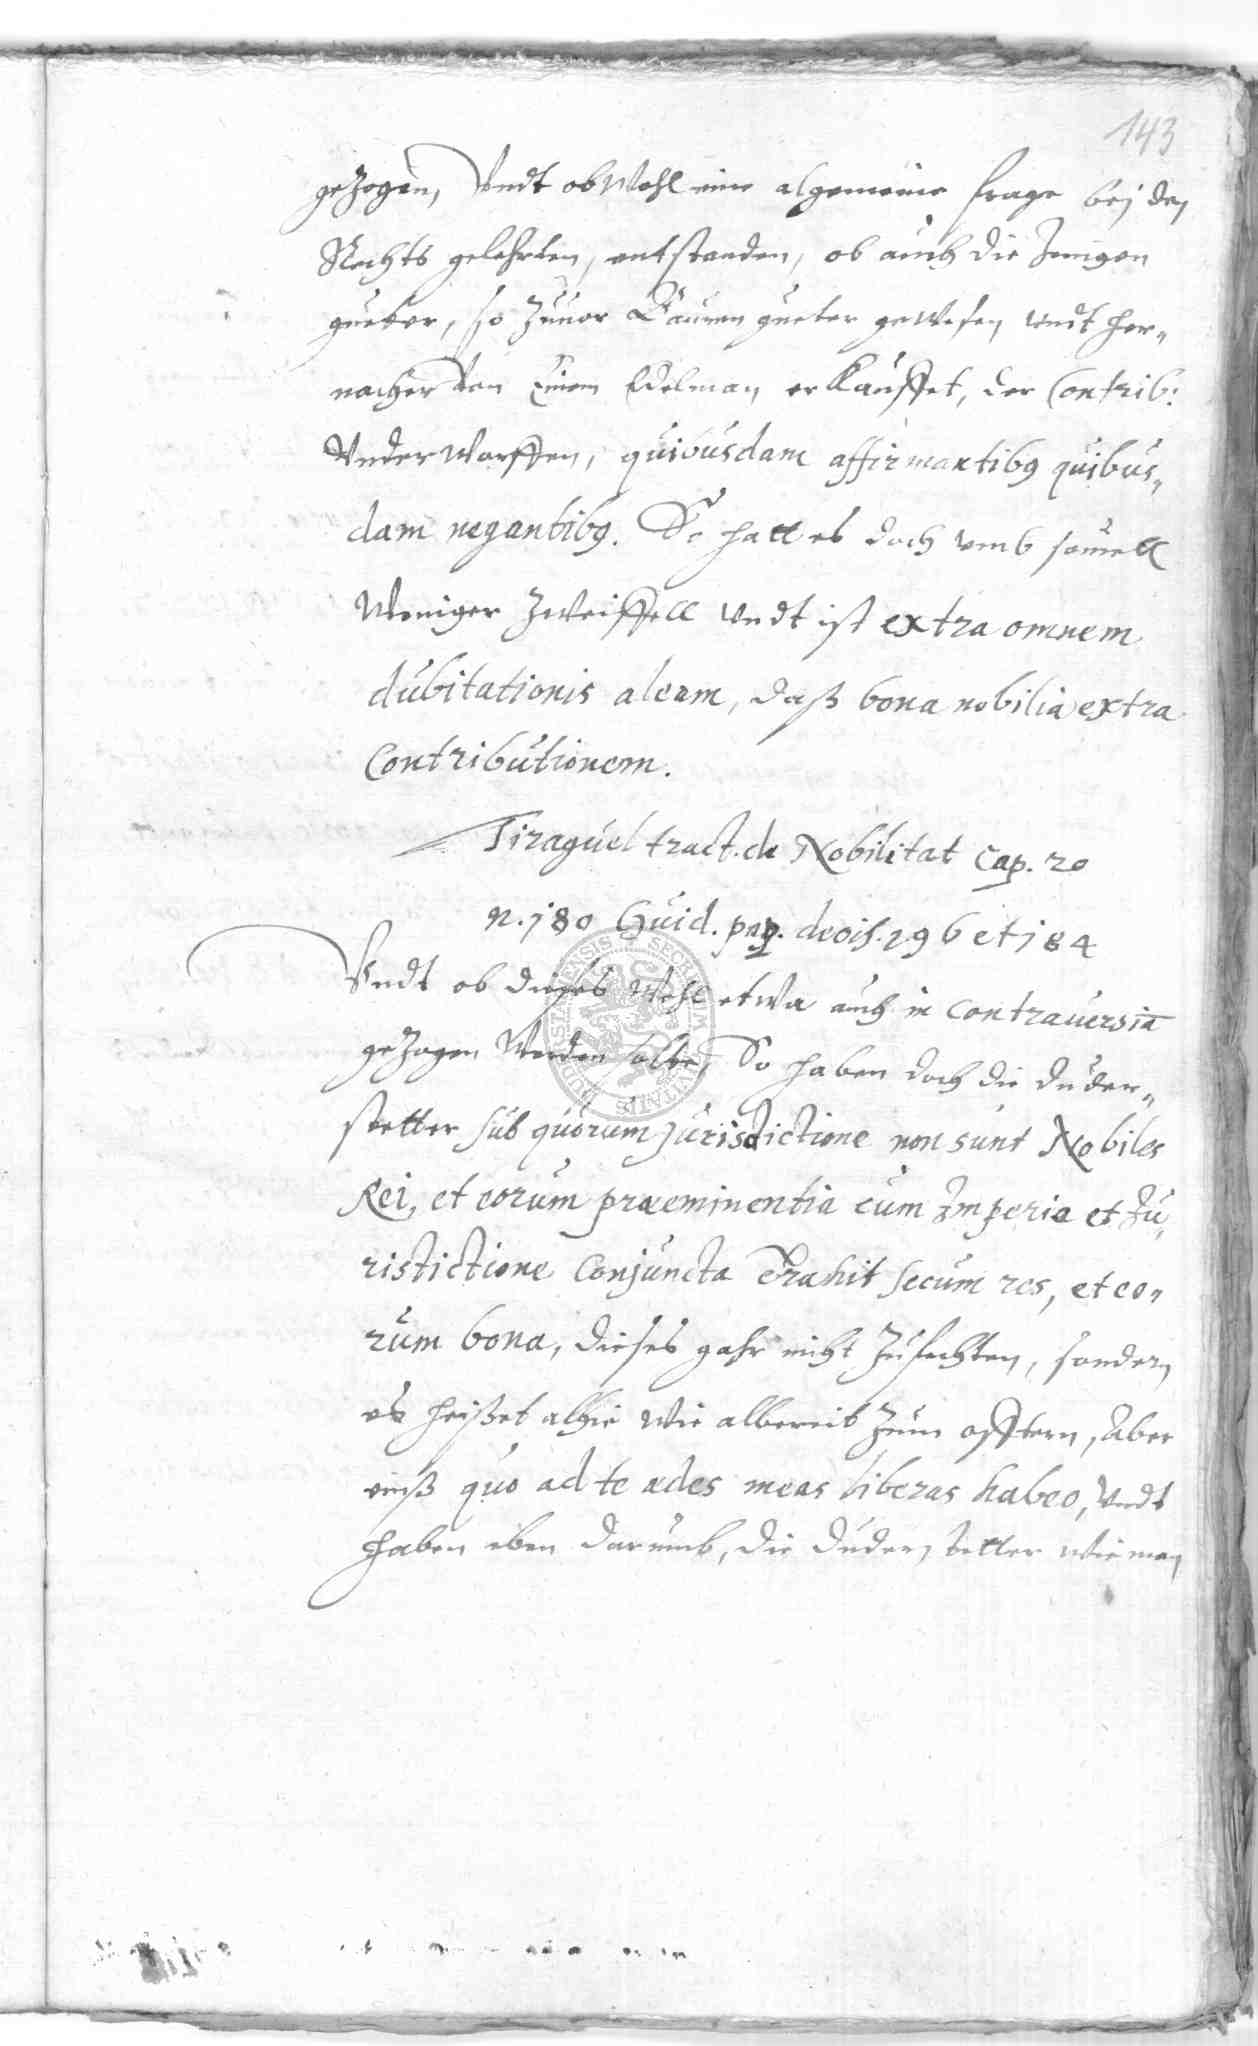 143
gezogen, Vndt ob Wohl eine algemeine frage bej den
Rechts gelehrten, entstanden, ob auch die Jenigen
gueter, so Zuuor Bauren gueter geWesen, vndt her„
nacher Von Einem Edelman, erkauffet, der Contrib:
VnderWorffen, quibusdam affirmantibꝯ quibus„
dam negantibꝯ. So hatt es doch vmb souiell
Weniger Zweiffell Vndt ist extra omnem
dubitationis aleam, daß bona nobilia extra
Contributionem.
Tiraquel tract. de Nobilitat Cap. 20
n. 180 Guid. pap. decis. 196 et 184
Vndt ob dieses Wohl etwa auch in contrauersiā
gezogen Werden solte, So haben doch die Duder„
stetter sub quorum Jurisdictione non sunt Nobiles
Rei, et eorum præeminentia cum Imperio et Ju„
ristictione Conjuncta Trahit secum res, et eo„
rum bona, dieses gahr nicht Zufechten, sondern
es heißet alhie Wie albereit Zum offtern, Aber
einß quo ad te ædes meas liberas habeo, Vndt
haben eben darumb, die Duderstetter wie man